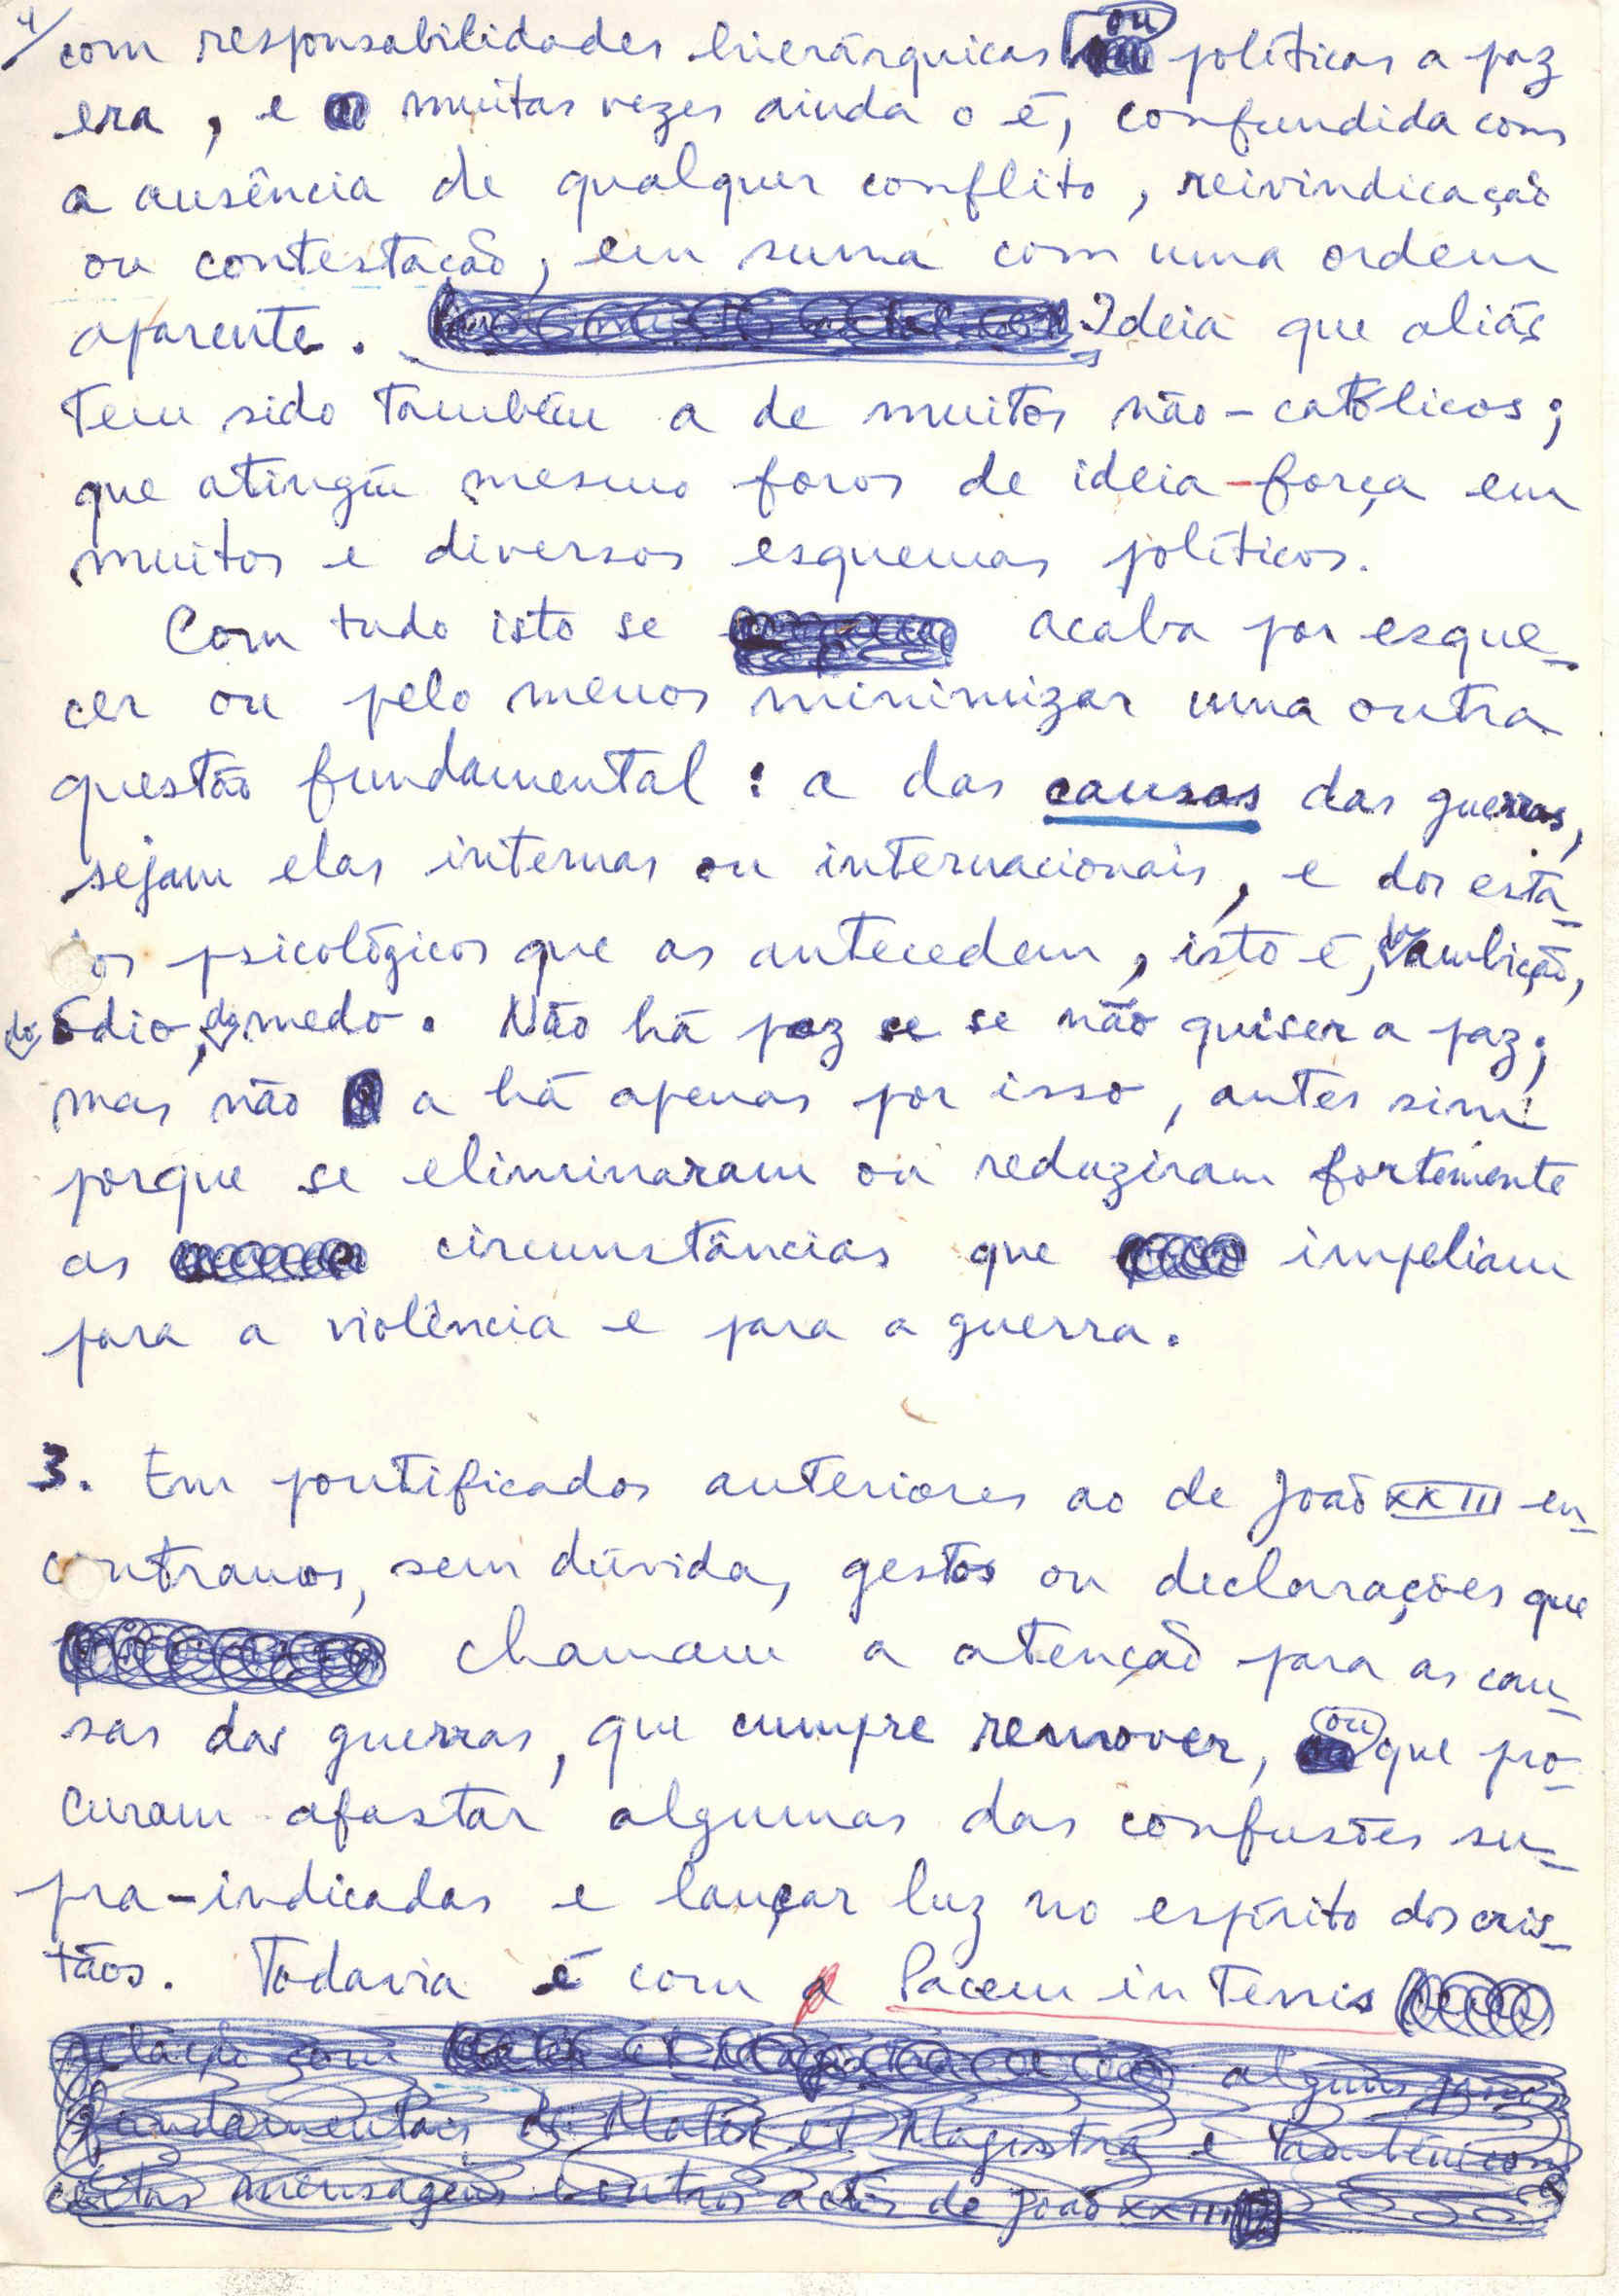 4/
com responsabilidades hierárquicas ou políticas a paz
era, e muitas vezes ainda o é, confundida com
a ausência de qualquer conflito, reivindicação
ou contestação, em suma com uma ordem
aparente. Ideia que aliás
tem sido também a de muitos não-católicos;
que atingiu mesmo foros de ideia-força em
muitos e diversos esquemas políticos.
Com tudo isto se acaba por esque-
cer ou pelo menos minimizar uma outra
questão fundamental: a das causas das guerras,
sejam elas internas ou internacionais, e dos esta-
os psicológicos que as antecedem, isto é, da ambição,
do ódio, do medo. Não há paz se se não quiser a paz;
mas não a há apenas por isso, antes sim
porque se eliminaram ou reduziram fortemente
as circunstâncias que impeliam
para a violência e para a guerra.
3. Em pontificados anteriores ao de João XXIII en-
contramos, sem dúvida, gestos ou declarações que
chamam a atenção para as cau-
sas das guerras, que cumpre remover, ou que pro-
curam afastar algumas das confusões su-
pra-indicadas e lançar luz no espírito dos cris-
tãos. Todavia é com a Pacem in Terris
relação com alguns
fundamentais da Mater et Magistra e também com
certas mensagens e outros actos de João XXIII